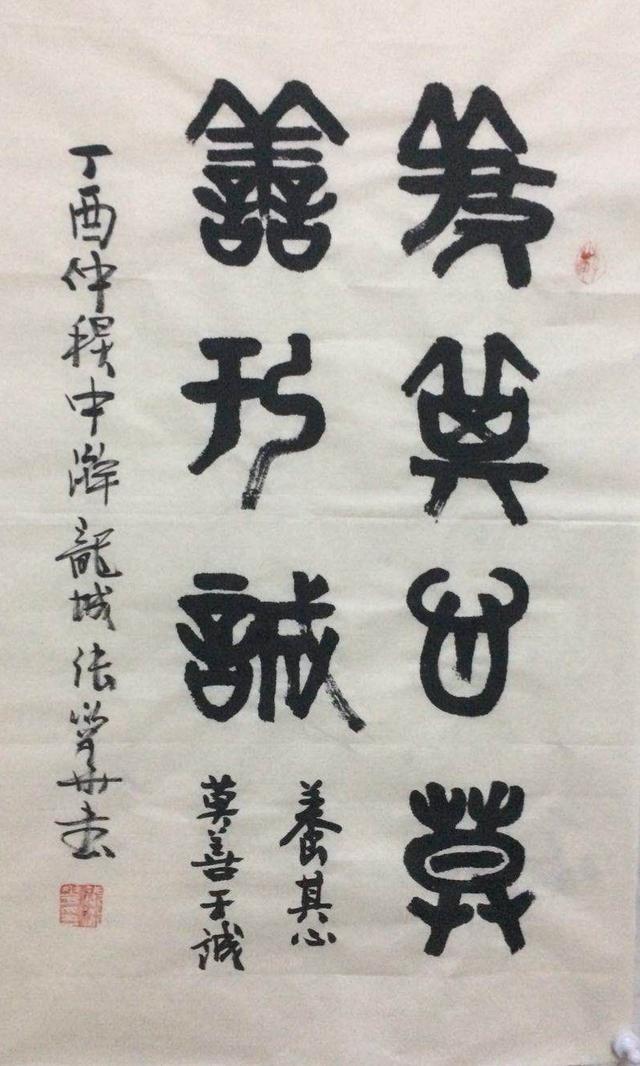 养其心莫
善于誠
養其心
莫善于誠
丁酉仲穐中浣龍城張學華書